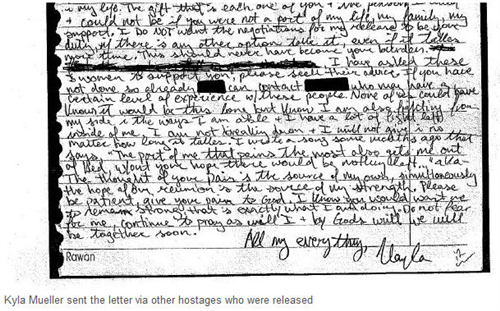 is my life. The gift that is each one of you + the person I
+ could not be if you were not a part of my life, my family, my
support. I DO NOT want the negotiations for my release to be your
duty, if there is any other option take it, even if it takes
more time. This should never have become your burden.
I have asked these
women to support you; please seek their advice. If you have
not done so already, can contact who may have a
certain level of experience with these people. None of us could have
known it would be this long but know I am also fighting from
my side in the ways I am able + I have a lot of fight left
inside of me. I am not breaking down + I will not give in no
matter how long it takes. I wrote a song some months ago that
says, "The part of me that pains the most also gets me out
of bed, w/out your hope there would be nothing left..." aka-
The thought of your pain is the source of my own, simultaneously
the hope of our reunion is the source of my strength. Please
be patient, give your pain to God. I know you would want me
to remain strong. That is exactly what I am doing. Do not fear
for me, continue to pray as will I + by God's will we will
be together soon.
All my everything,
Kayla
Rawan
Kyla Mueller sent the letter via other hostages who were released